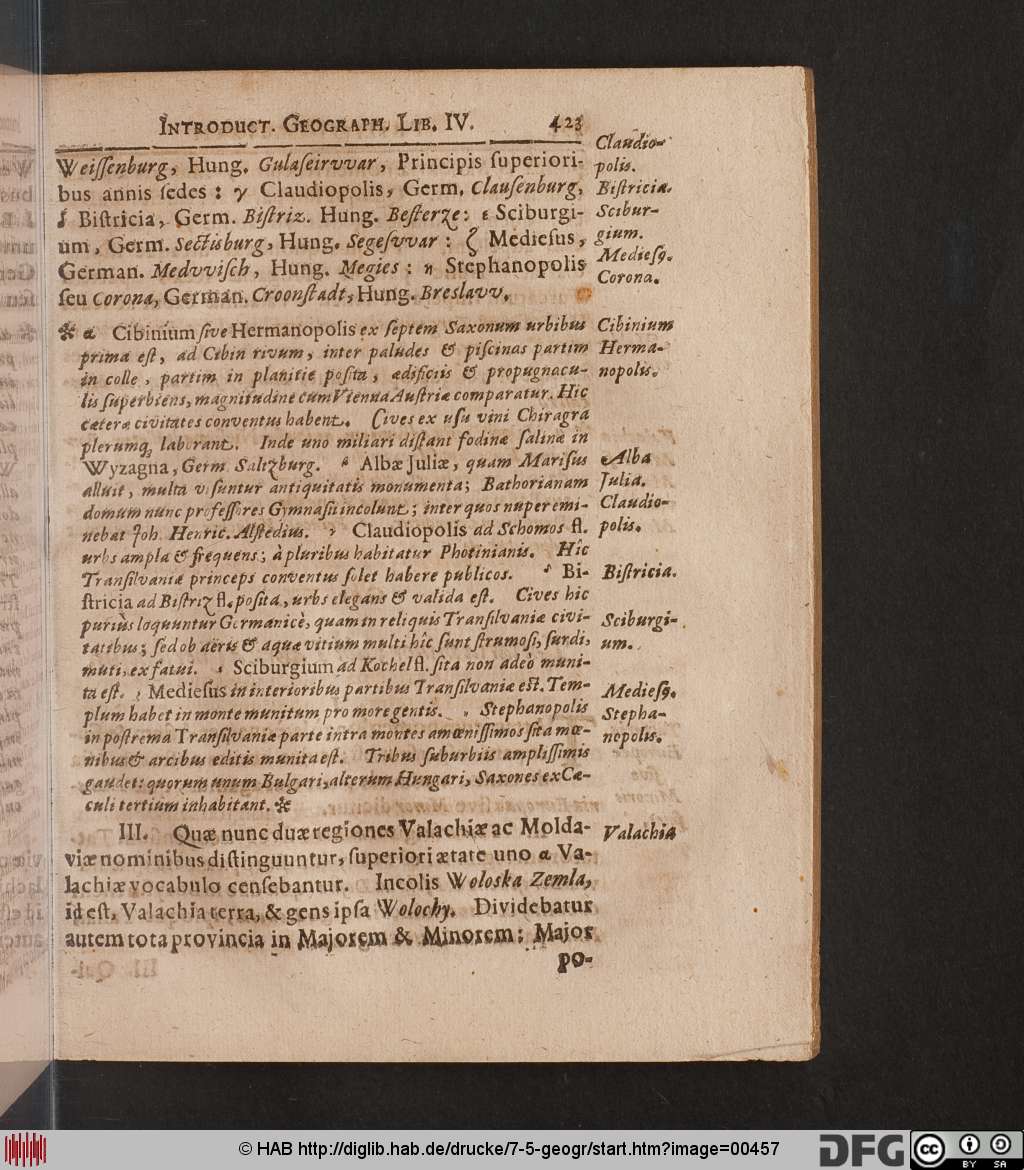 INTRODUCT. GEOGRAPH. LIB. IV. 423
Weiſſenburg, Hung. Gulaſeirvvar, Principis ſuperiori-
bus annis ſedes: γ Claudiopolis, Germ. Clauſenburg,
δ Biſtricia, Germ. Biſtriz. Hung. Beſterze: ε Sciburgi-
um, Germ. Sectisburg, Hung. Segeſvvar: ζ Medieſus,
German. Medvviſch, Hung. Megies: η Stephanopolis
ſeu Corona, German. Croonſtadt, Hung. Breslavv.
Claudio-
polis.
Biſtricia.
Scibur-
gium.
Medieſꝰ.
Corona.
✻ α Cibinium ſive Hermanopolis ex ſeptem Saxonum urbibus
prima eſt, ad Cibin rivum, inter paludes & piſcinas partim
in colle, partim in planitie poſita, ædificiis & propugnacu-
lis ſuperbiens, magnitudine cum Vienna Auſtriæ comparatur. Hic
cæteræ civitates conventus habent. Cives ex uſu vini Chiragra
plerumq; laborant. Inde uno miliari diſtant fodinæ ſalinæ in
Wyzagna, Germ. Saltzburg. β Albæ Juliæ, quam Mariſus
alluit, multa viſuntur antiquitatis monumenta; Bathorianam
domum nunc profeſſores Gymnaſii incolunt; inter quos nuper emi-
nebat Joh. Henric. Alſtedius. γ Claudiopolis ad Schomos fl.
urbs ampla & frequens; à pluribus habitatur Photinianis. Hîc
Tranſilvaniæ princeps conventus ſolet habere publicos. δ Bi-
ſtricia ad Biſtriz fl. poſita, urbs elegans & valida eſt. Cives hic
puriùs loquuntur Germanicè, quam in reliquis Tranſilvaniæ civi-
tatibus; ſed ob aëris & aquæ vitium multi hîc ſunt ſtrumoſi, ſurdi,
muti, ex fatui. ε Sciburgium ad Kochel fl. ſita non adeò muni-
ta eſt. ζ Medieſus in interioribus partibus Tranſilvaniæ eſt. Tem-
plum habet in monte munitum pro more gentis. η Stephanopolis
in poſtrema Tranſilvaniæ parte intra montes amœniſſimos ſita mœ-
nibus & arcibus editis munita eſt. Tribus ſuburbiis ampliſſimis
gaudet: quorum unum Bulgari, alterum Hungari, Saxones ex Cæ-
culi tertium inhabitant. ✻
Cibinium
Herma-
nopolis.
Alba
Julia.
Claudio-
polis.
Biſtricia.
Sciburgi-
um.
Medieſꝰ.
Stepha-
nopolis.
III. Quæ nunc duæ regiones Valachiæ ac Molda-
viæ nominibus diſtinguuntur, ſuperiori ætate uno α Va-
lachiæ vocabulo cenſebantur. Incolis Woloska Zemla,
id eſt, Valachia terra, & gens ipſa Wolochy. Dividebatur
autem tota provincia in Majorem & Minorem; Major
po-
Valachia
© HAB http://diglib.hab.de/drucke/7-5-geogr/start.htm?image=00457
DFG
cc
BY SA